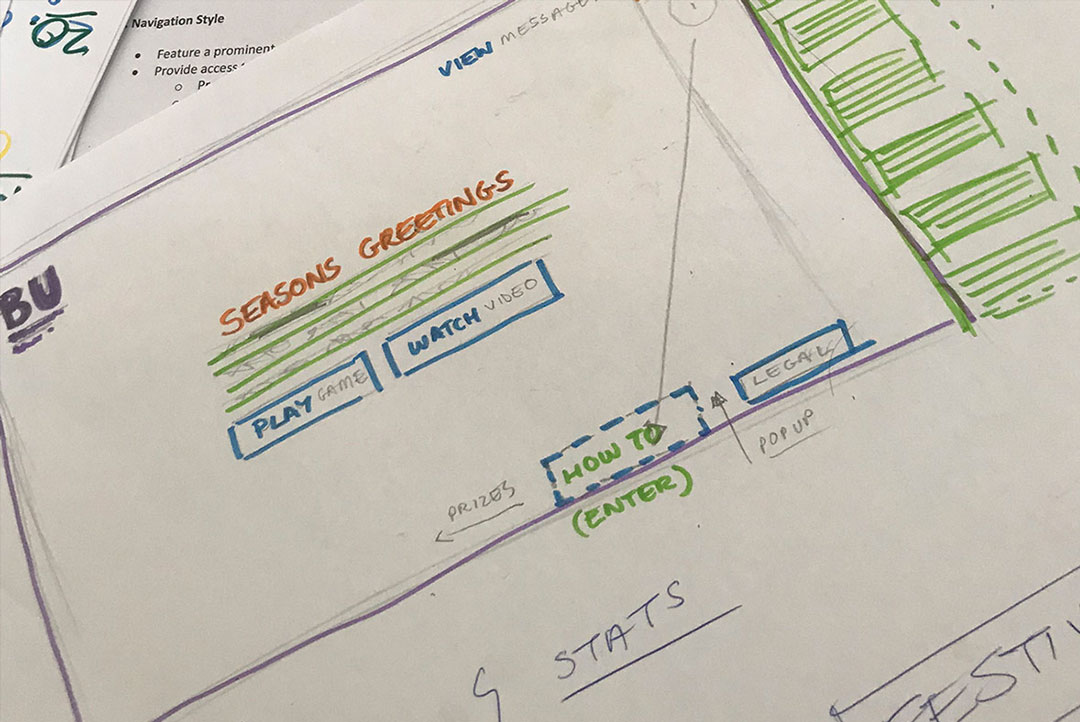 Navigation Style
• Feature a prominent
• Provide access
VIEW MESSAGE
SEASONS GREETINGS
BU
WATCH VIDEO
PLAY GAME
LEGAL
HOW TO
POP UP
PRIZES
(ENTER)
STATS